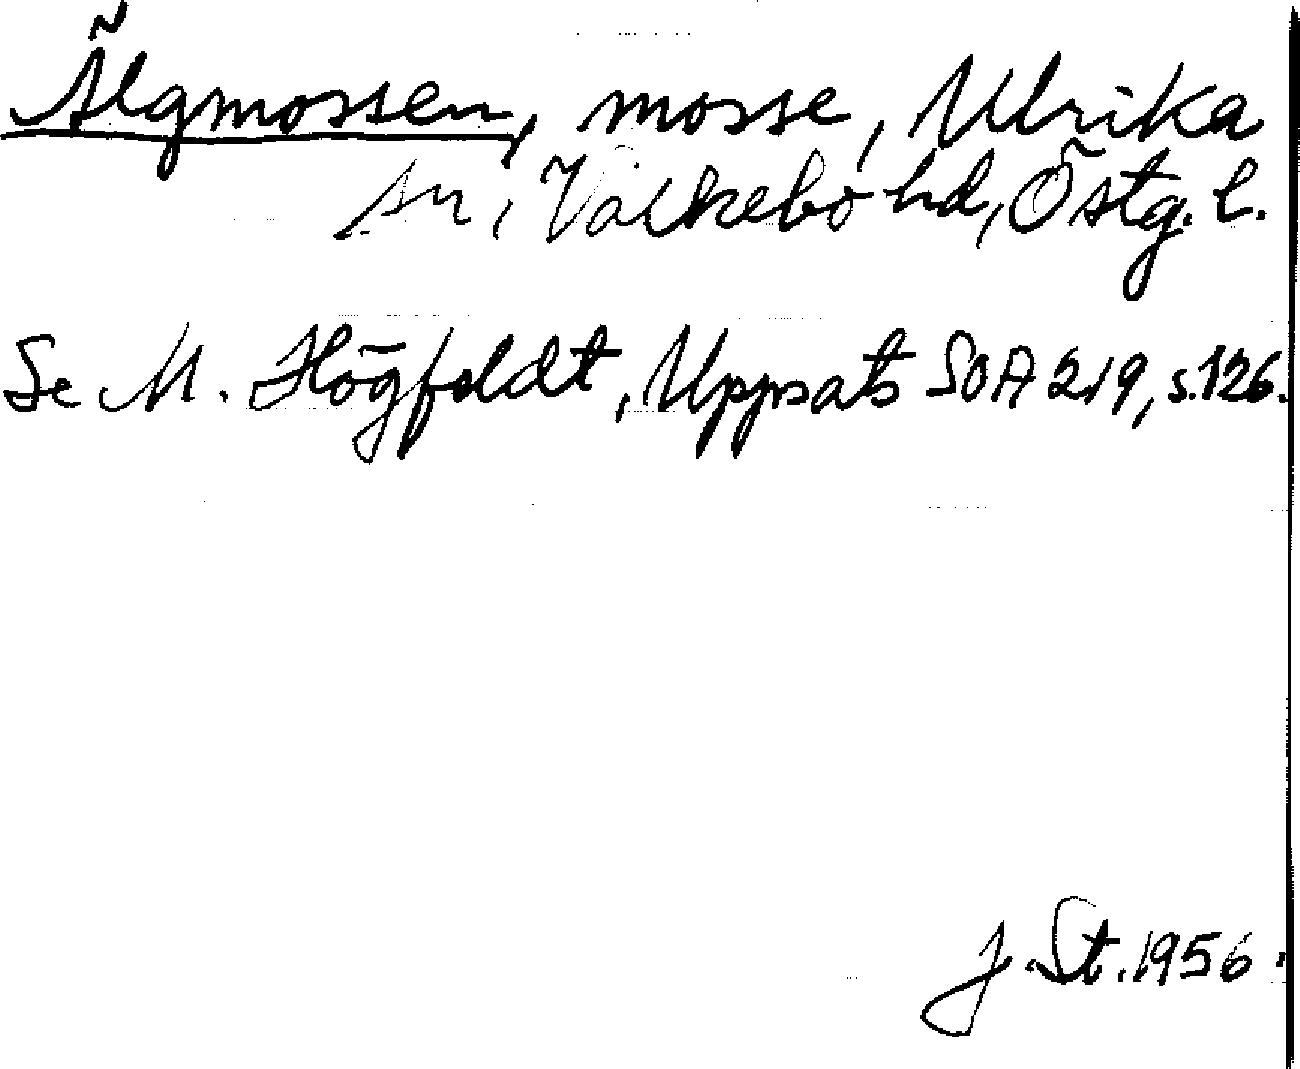 Älgmossen, mosse, Ulrika
sn, Valkebo hd, Östg. l.
Se M. Högfeldt, Uppsats SOA 219, s.126.
J. St. 1956.